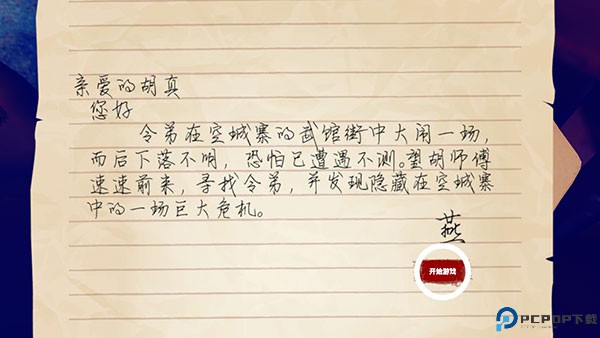 亲爱的胡真
您好
令弟在空城寨的武馆街中大闹一场，
而后下落不明，恐怕已遭遇不测。望胡师傅
速速前来，寻找令弟，并发现隐藏在空城寨
中的一场巨大危机。
燕
开始游戏
PCPOP下载